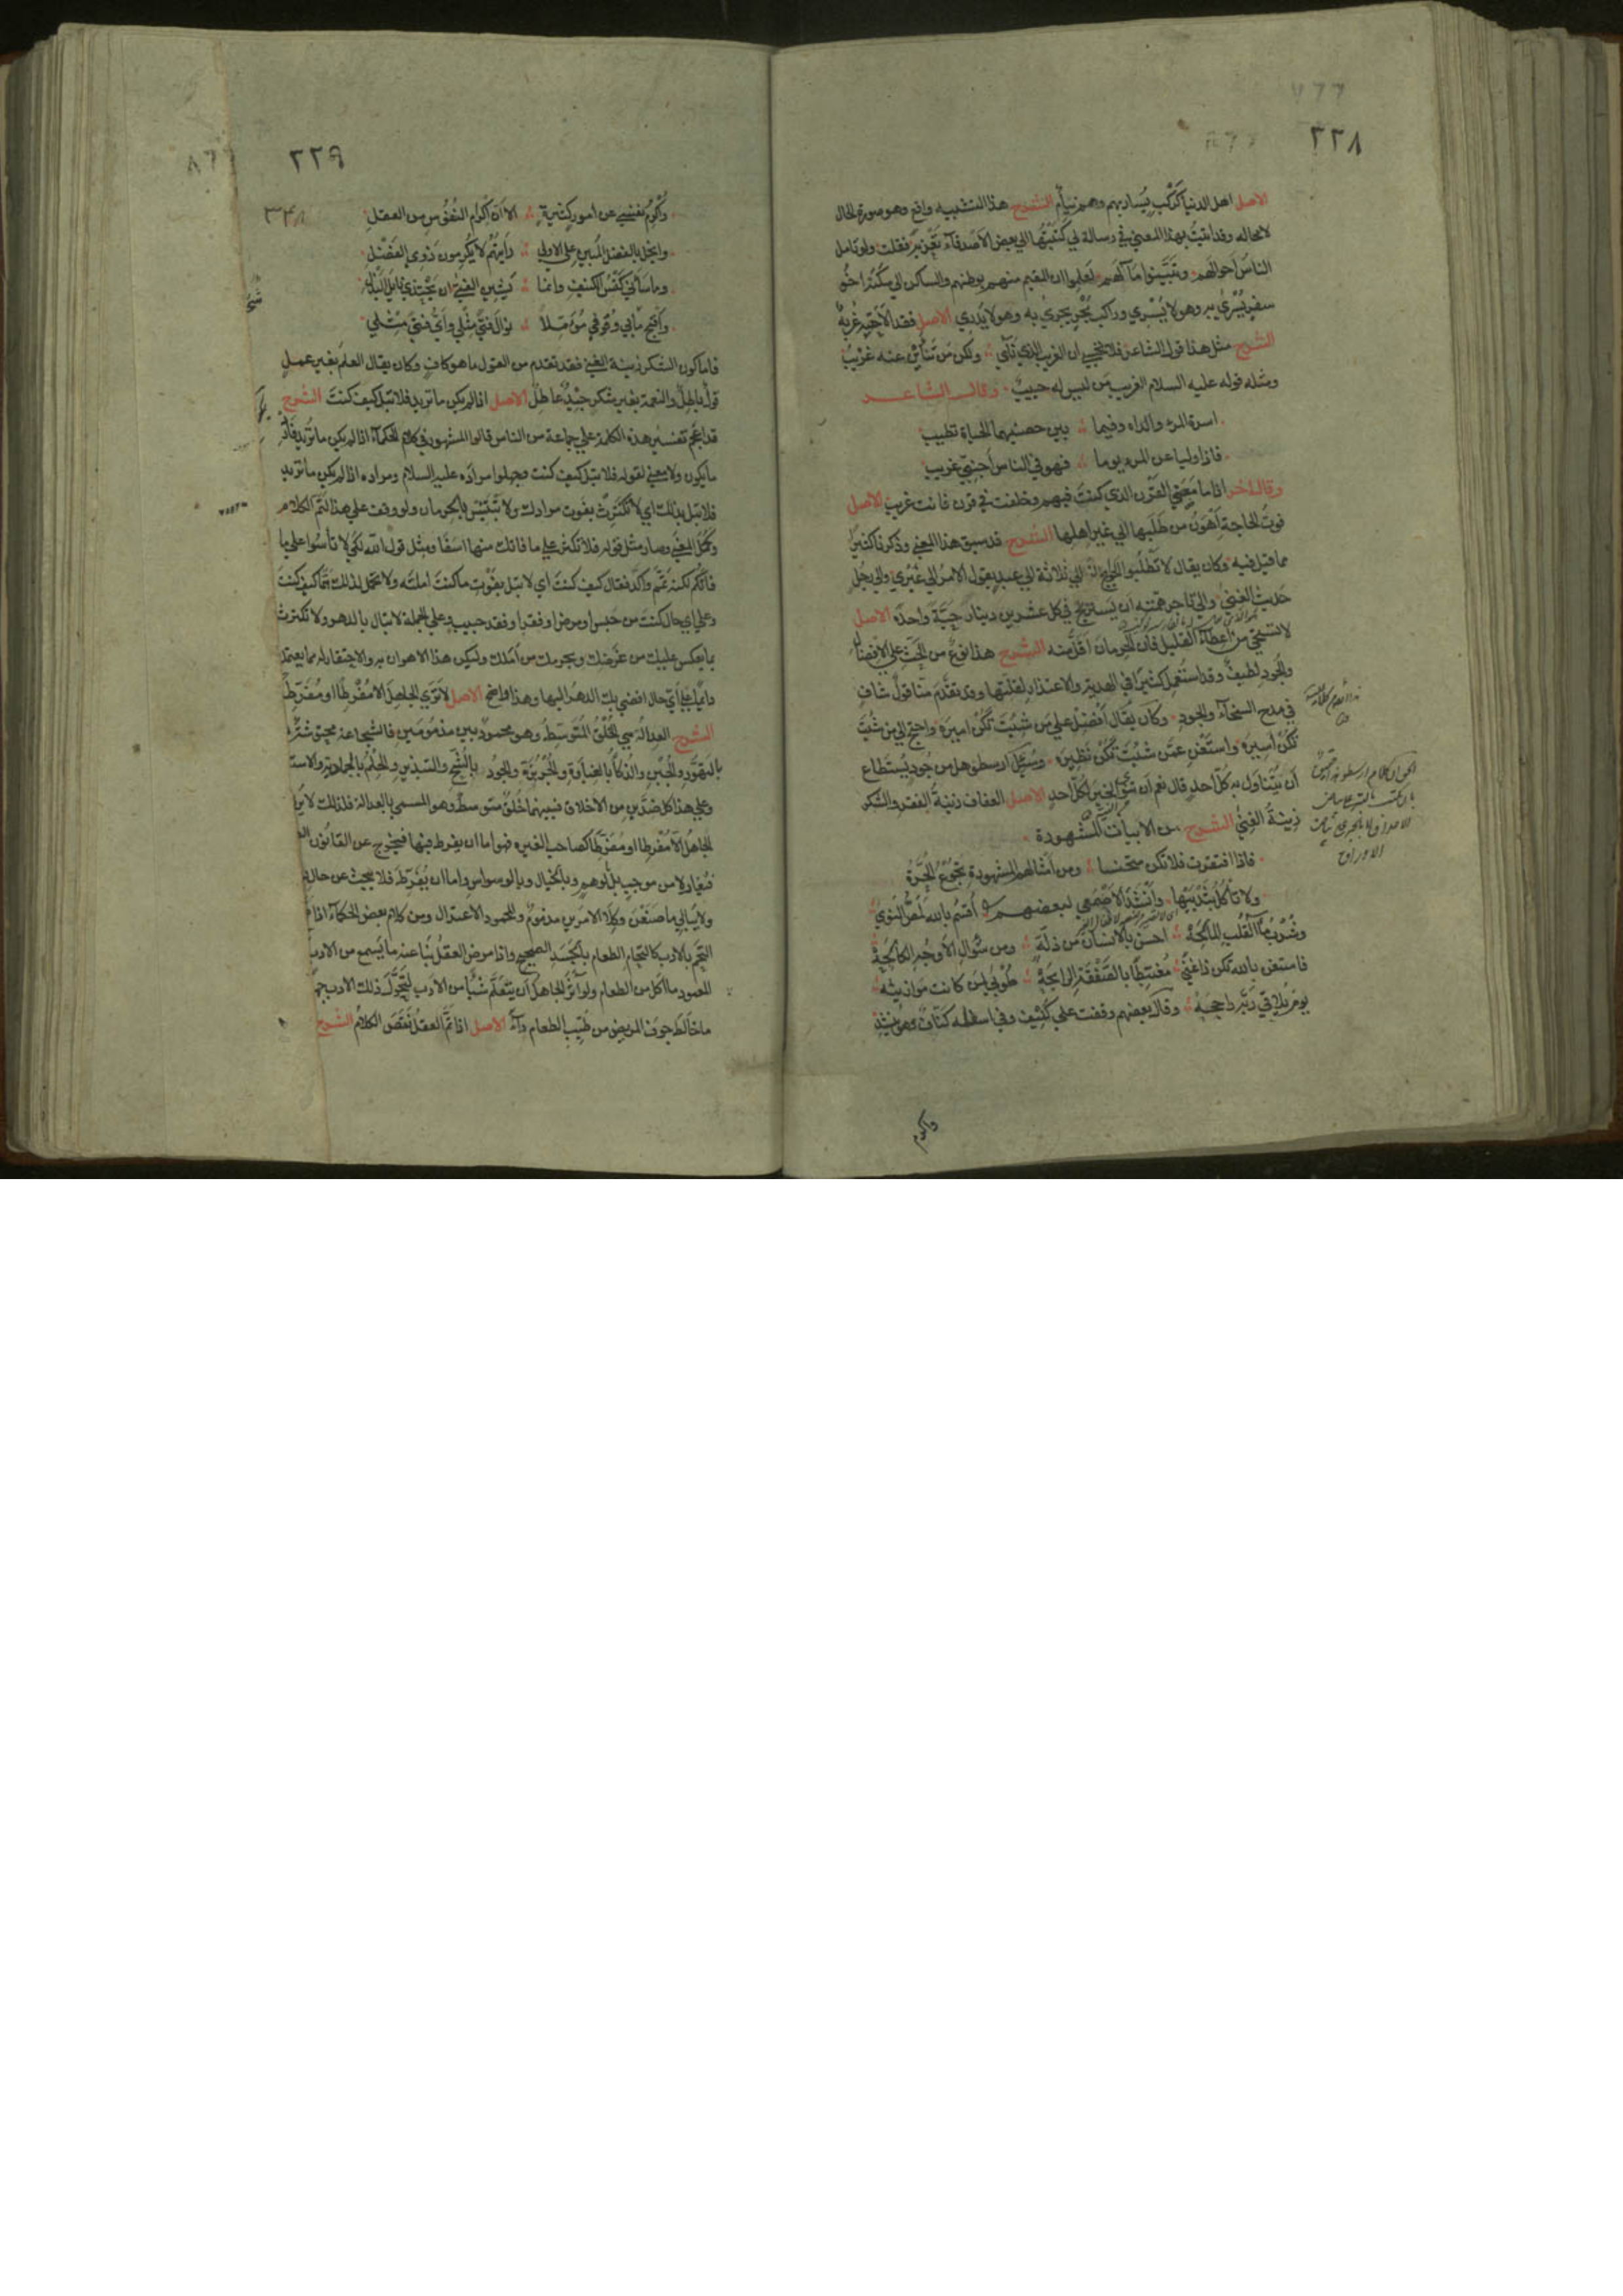 ٢٢٨
الاصل اهل الدنيا كركب يسار بهم وهم نيام الشرح هذا التشبيه واقع وهو صورة الحال
لا محاله وقد اتيت بهذا المعنى في رسالة لي كتبتها الى بعض الاصدقاء تعزية فقلت ولو تامل
الناس احوالهم وتبينوا مآلهم لعلموا ان المقيم منهم بوطنه والساكن الى سكنه اخو
سفر يسرى به وهو لا يسري وراكب بحر يجري به وهو لا يدري الاصل فقد الاحبة غربة
الشرح مثل هذا قول الشاعر فلا تحسبي ان الغريب الذي نأى ولكن من تنأين عنه غريب
ومثله قوله عليه السلام الغريب من ليس له حبيب وقال الشاعر
اسرة المرء والداه وفيما بين حضنيهما الحياة تطيب
فاذا وليا عن المرء يوما فهو في الناس اجنبي غريب
وقال اخر اذا ما مضى القرن الذي كنت فيهم وخلفت في قرن فانت غريب الاصل
فوت الحاجة اهون من طلبها الى غير اهلها الشرح قد سبق هذا المعنى وذكرنا كثيرا
مما قيل فيه وكان يقال لا تطلبوا الحوايج الى ثلاثة الى عبد يقول الامر الى غيري والى رجل
حديث الغنى والى تاجر همته ان يستربح في كل عشرين دينار حبة واحدة الاصل
لا تستحي من اعطاء القليل فان الحرمان اقل منه الشرح هذا نوع من الحث على الافضال
والجود لطيف وقد استعمل كثيرا في الهدية والاعتذار لقلتها وقد تقدم منا قول شاف
في مدح السخاء والجود وكان يقال افضل على من شئت تكن اميره واحتج الى من شئت
تكن اسيره واستغن عمن شئت تكن نظيره وسئل ارسطو هل من جود يستطاع
ان يتناول به كل احد قال نعم ان تنوي الخير لكل احد الاصل العفاف زينة الفقر والشكر
زينة الغنى الشرح من الابيات المشهورة
فاذا افتقرت فلا تكن متخشعا ومن امثالهم المشهورة تجوع الحرة
ولا تاكل بثدييها وانشد الاصمعي لبعضهم اقسم بالله لمص النوى
وشرب ماء القلب المالحة احسن بالانسان من ذلة ومن سؤال الاوجه الكالحة
فاستغن بالله تكن ذا غنى مغتبطا بالصفقة الرابحة طوبى لمن كانت موازينه
يوم يلاقي ربه راجحه وقال بعضهم وقفت على كنيف وفي اسفله كناف وهو ينشد
واكرم
٢٢٩
٣٣٨
واكرم نفسي عن امور كثيرة الا ان اكرام النفوس من العقل
وابخل بالفضل المبين على الاولى رايتهم لا يكرمون ذوي الفضل
وما شانني كنس الكنيف وانما يشين الفتى ان يجتدي نايل النذل
واقبح مما بي وقوفي مؤملا نوال فتى مثلي واي فتى مثلي
فاما كون الشكر زينة الغنى فقد تقدم من القول ما هو كاف وكان يقال العلم بغير عمل
قول باطل والنعمة بغير شكر جيد عاطل الاصل اذا لم يكن ما تريد فلا تبل كيف كنت الشرح
قد اعجم تفسير هذه الكلمة على جماعة من الناس قالوا المشهور في كلام الحكماء اذا لم يكن ما تريد فارد
ما يكون ولا معنى لقوله فلا تبل كيف كنت وجهلوا مراده عليه السلام ومراده اذا لم يكن ما تريد
فلا تبل بذلك اي لا تكترث بفوت مرادك ولا تبتئس بالحرمان ولو وقف على هذا لتم الكلام
وكمل المعنى وصار مثل قوله فلا تكثر على ما فاتك منها اسفا ومثل قول الله لكي لا تأسوا على ما
فاتكم لكنه تمم واكد فقال كيف كنت اي لا تبل بفوت ما كنت املته ولا تحمل لذلك هما كيف كنت
وعلى اي حال كنت من حبس او مرض او فقر او فقد حبيب وعلى الجملة لا تبال بالدهر ولا تكترث
بما يعكس عليك من غرضك ويحرمك من املك وليكن هذا الاهوان به والاحتقار له مما يعتمد
دايما على اي حال افضى بك الدهر اليها وهذا واضح الاصل لا ترى الجاهل الا مفرطا او مفرطا
الشرح العدالة هي الخلق المتوسط وهو محمود بين مذمومين فالشجاعة محتوشة
بالتهور والجبن والذكاء بالغباوة والجربزة والجود بالشح والتبذير والحلم بالجمادية والاست
وعلى هذا كل ضدين من الاخلاق فبينهما خلق متوسط وهو المسمى بالعدالة فلذلك لا يرى
الجاهل الا مفرطا او مفرطا كصاحب الغيرة فهو اما ان يفرط فيها فيخرج عن القانون
فيغار لا من موجب بل بالوهم وبالخيال وبالوسواس واما ان يفرط فلا يبحث عن حال
ولا يبالي ما صنعن وكلا الامرين مذموم والمحمود الاعتدال ومن كلام بعض الحكماء اذا صح
التحم بالادب كالتحام الطعام بالجسد الصحيح واذا مرض العقل نبا عنه ما يسمع من الادب
الممعود ما اكل من الطعام ولو آثر الجاهل ان يتعلم شيئا من الادب لتحول ذلك الادب
ما خالط جوف المريض من طيب الطعام داء الاصل اذا تم العقل نقص الكلام الشرح